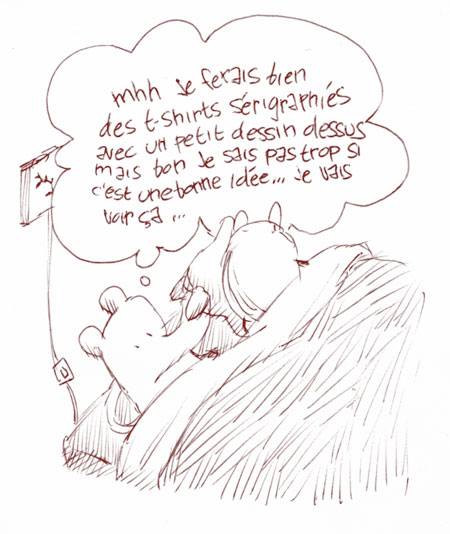 mhh je ferais bien
des t-shirts sérigraphiés
avec un petit dessin dessus
mais bon je sais pas trop si
c'est une bonne idée... je vais
voir ça...